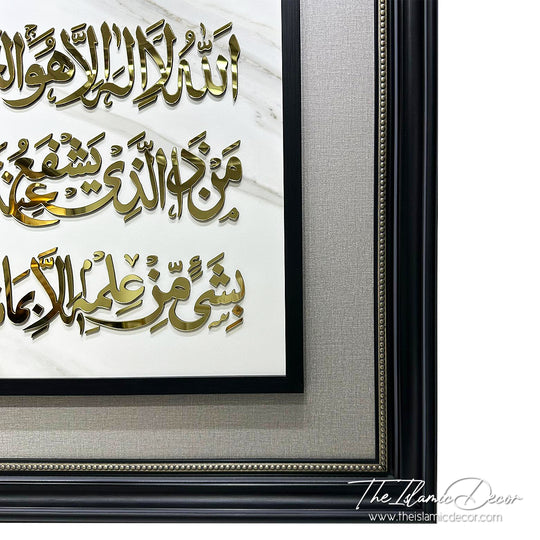 اَللّٰهُ لَا اِلٰهَ اِلَّا هُوَ
مَنْ ذَا الَّذِىْ يَشْفَعُ
بِشَىْءٍ مِّنْ عِلْمِهٖۤ اِلَّا بِمَا
The Islamic Decor
www.theislamicdecor.com